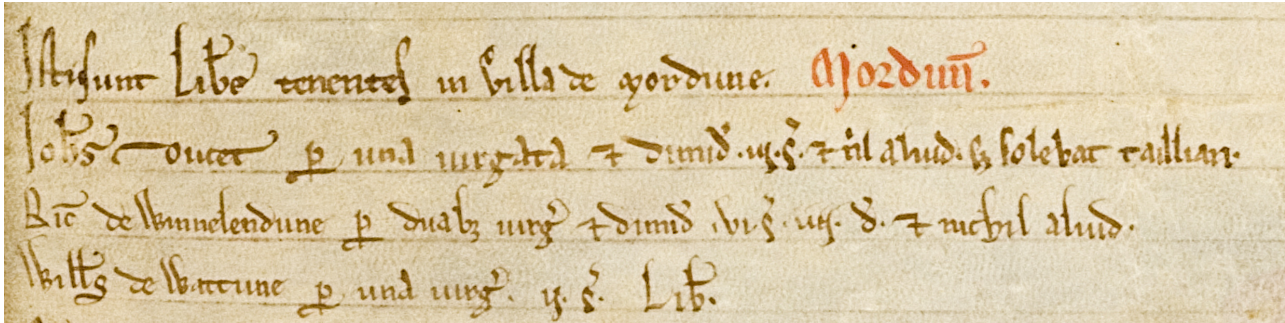 Isti sunt Lib̄e tenentes in villa de mordune. Mordun̄.
Ioh̄s Toucet ꝑ una uirgata ⁊ dimid̓ .iij. s̓. ⁊ n̓il aliud. sꝫ solebat tailliari.
Ric̄ de Winnelendune ꝑ duabꝫ uirg̓ ⁊ dimid̓ .vi. s̓. iij. d̓. ⁊ nichil aliud.
Will̄s de Wattune ꝑ una uirg̓. ij. s̓. Lib̄.